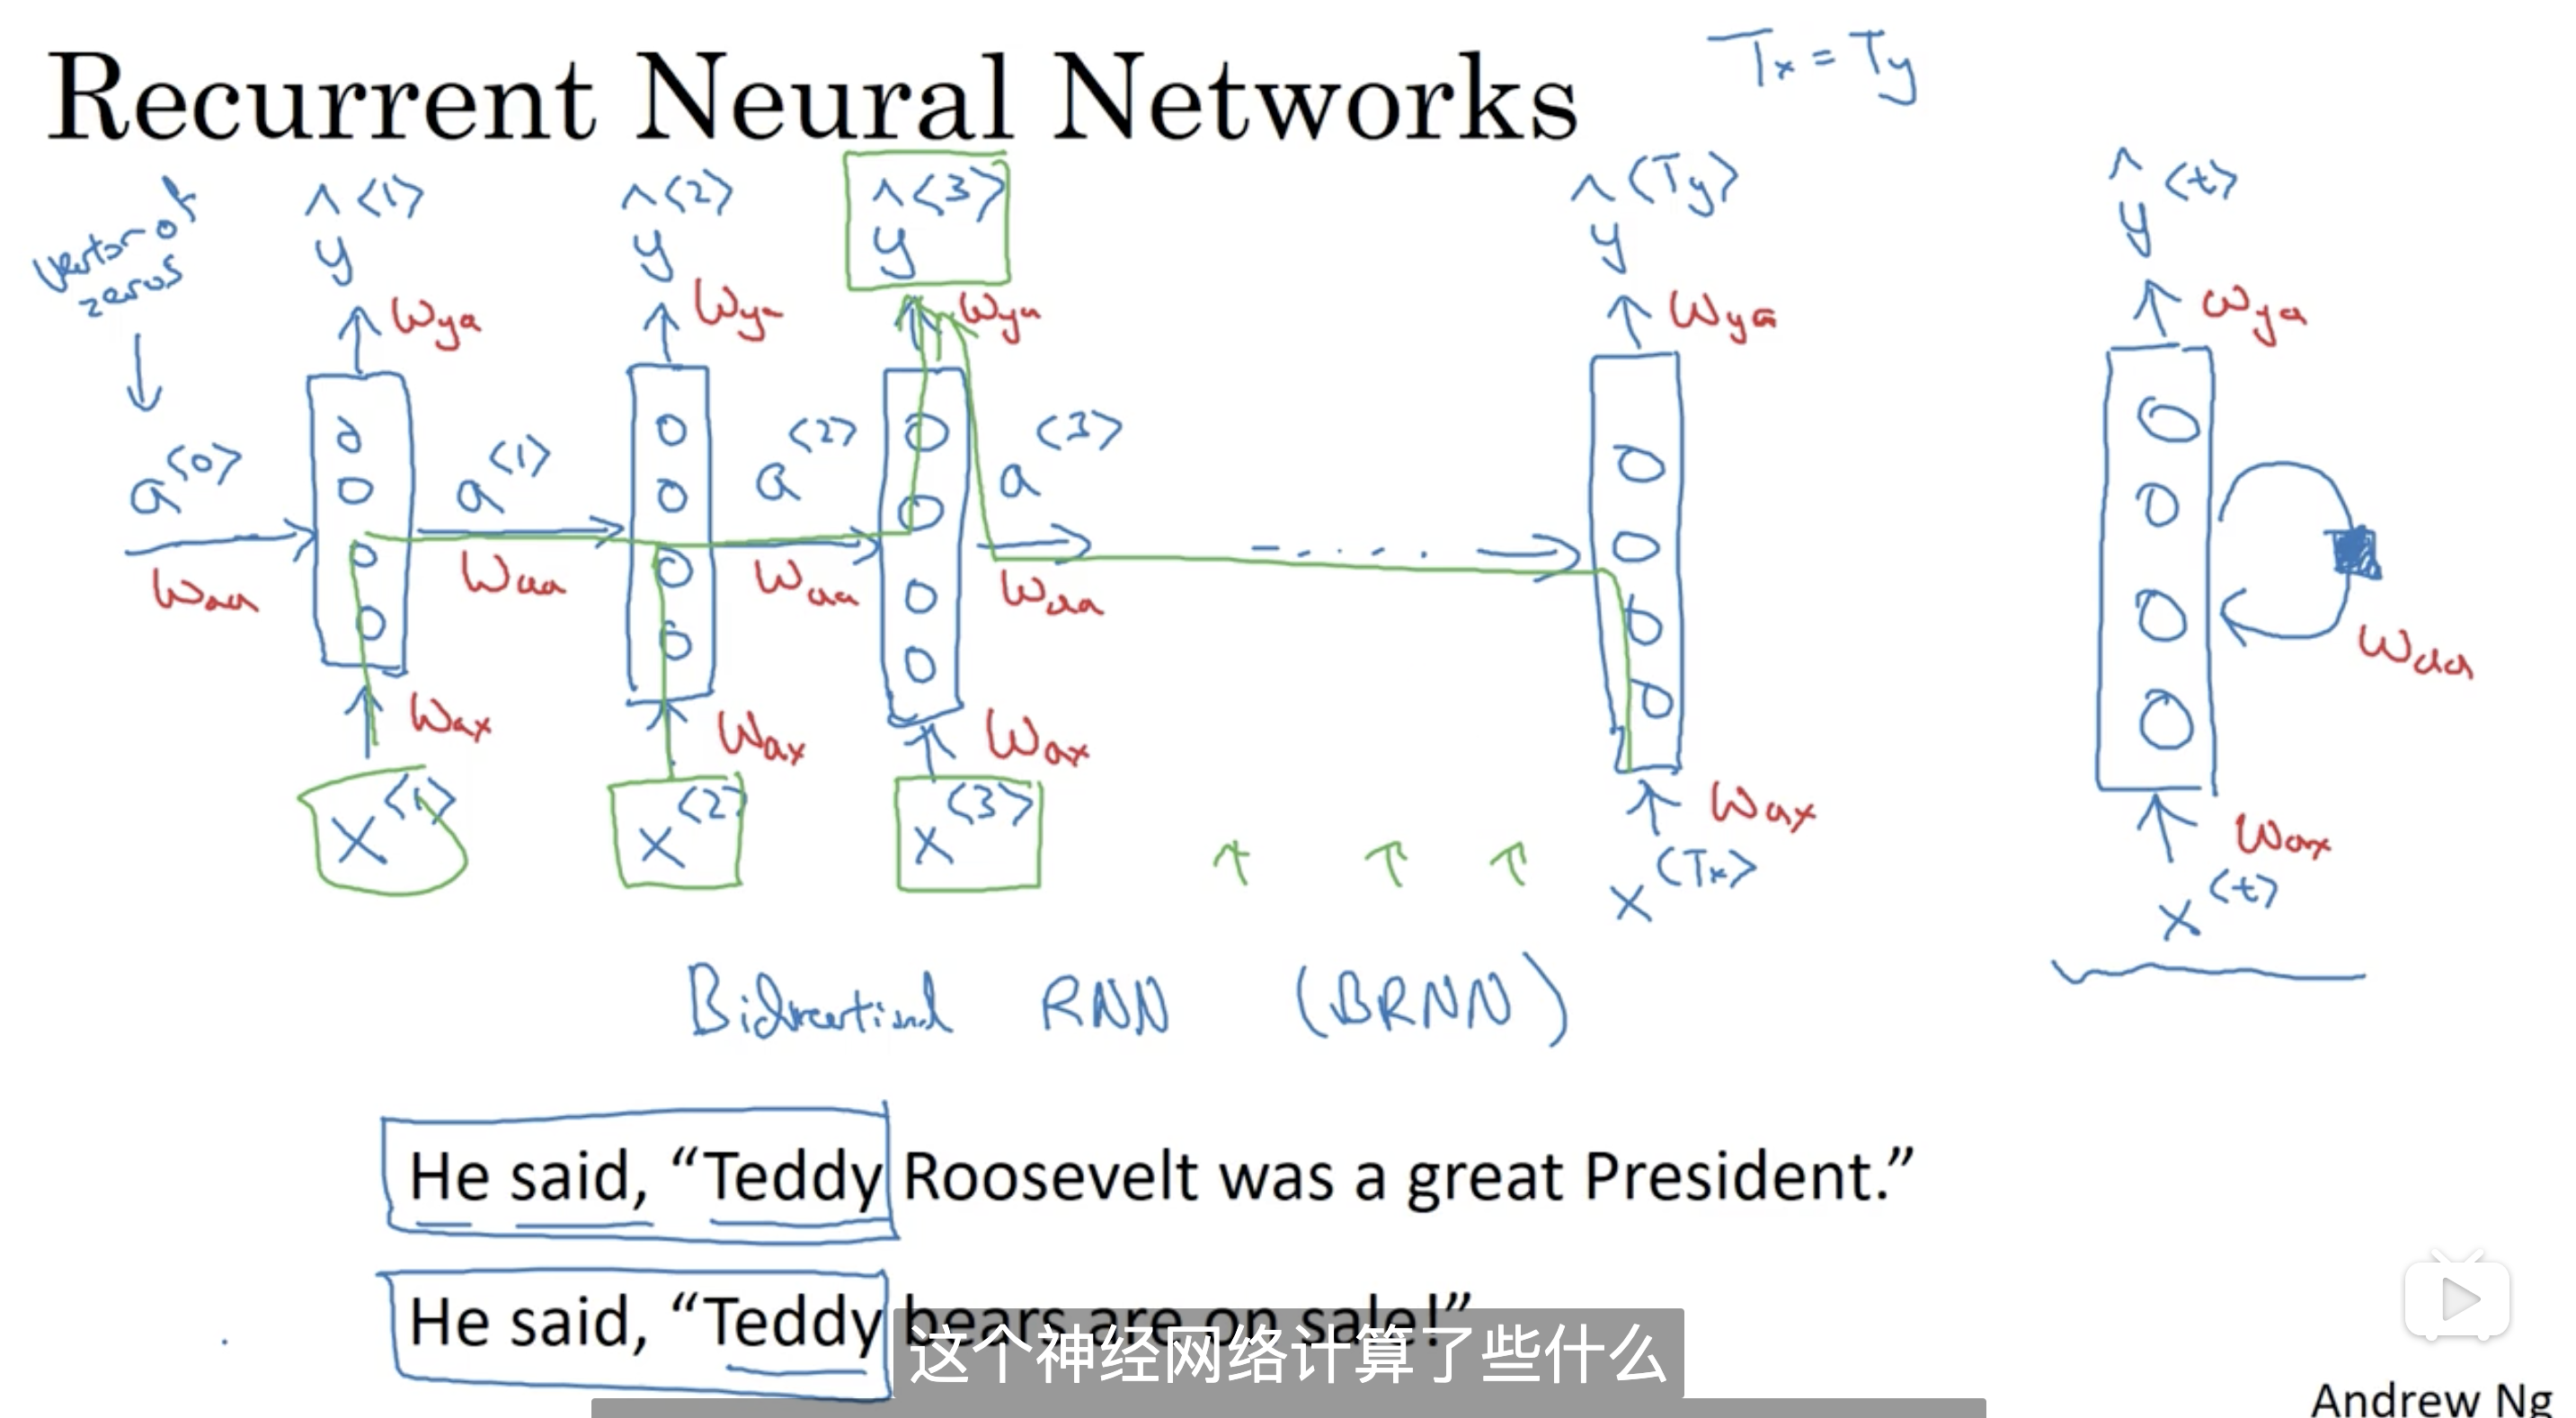 Recurrent Neural Networks
Tx = Ty
vector of zeros
ŷ<1> ŷ<2> ŷ<3> ŷ<Ty> ŷ<t>
Wya Wya Wya Wya Wya
a<0> a<1> a<2> a<3>
Waa Waa Waa Waa Waa
Wax Wax Wax Wax Wax
x<1> x<2> x<3> x<Tx> x<t>
Bidirectional RNN (BRNN)
He said, “Teddy Roosevelt was a great President.”
He said, “Teddy bears are on sale!”
这个神经网络计算了些什么
Andrew Ng